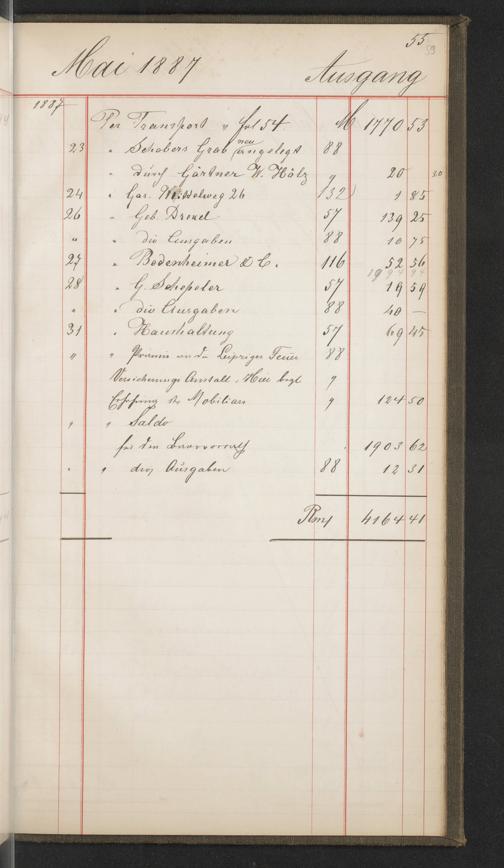 55
59
Mai 1887 Ausgang
1887
Per Transport v fol 54 M 1770 53
23 " Schobers Grab neu angelegt 88
" durch Gärtner W. Hölz " 20 30
24 " Gar. Mittelweg 26 132 1 85
26 " Geb. Drexel 57 139 25
" " die Ausgaben 88 10 75
27 " Bodenheimer & C. 116 52 56
28 " G. Schopeler 57 19 59
" " die Ausgaben 88 40 —
31 " Haushaltung 57 69 45
" " Prämie an die Leipziger Feuer 88
Versicherungs Anstalt "
Erhöhung des Mobiliars " 124 50
" " Saldo
für den 1903 62
" " Ausgaben 88 12 31
Rm 4164 41